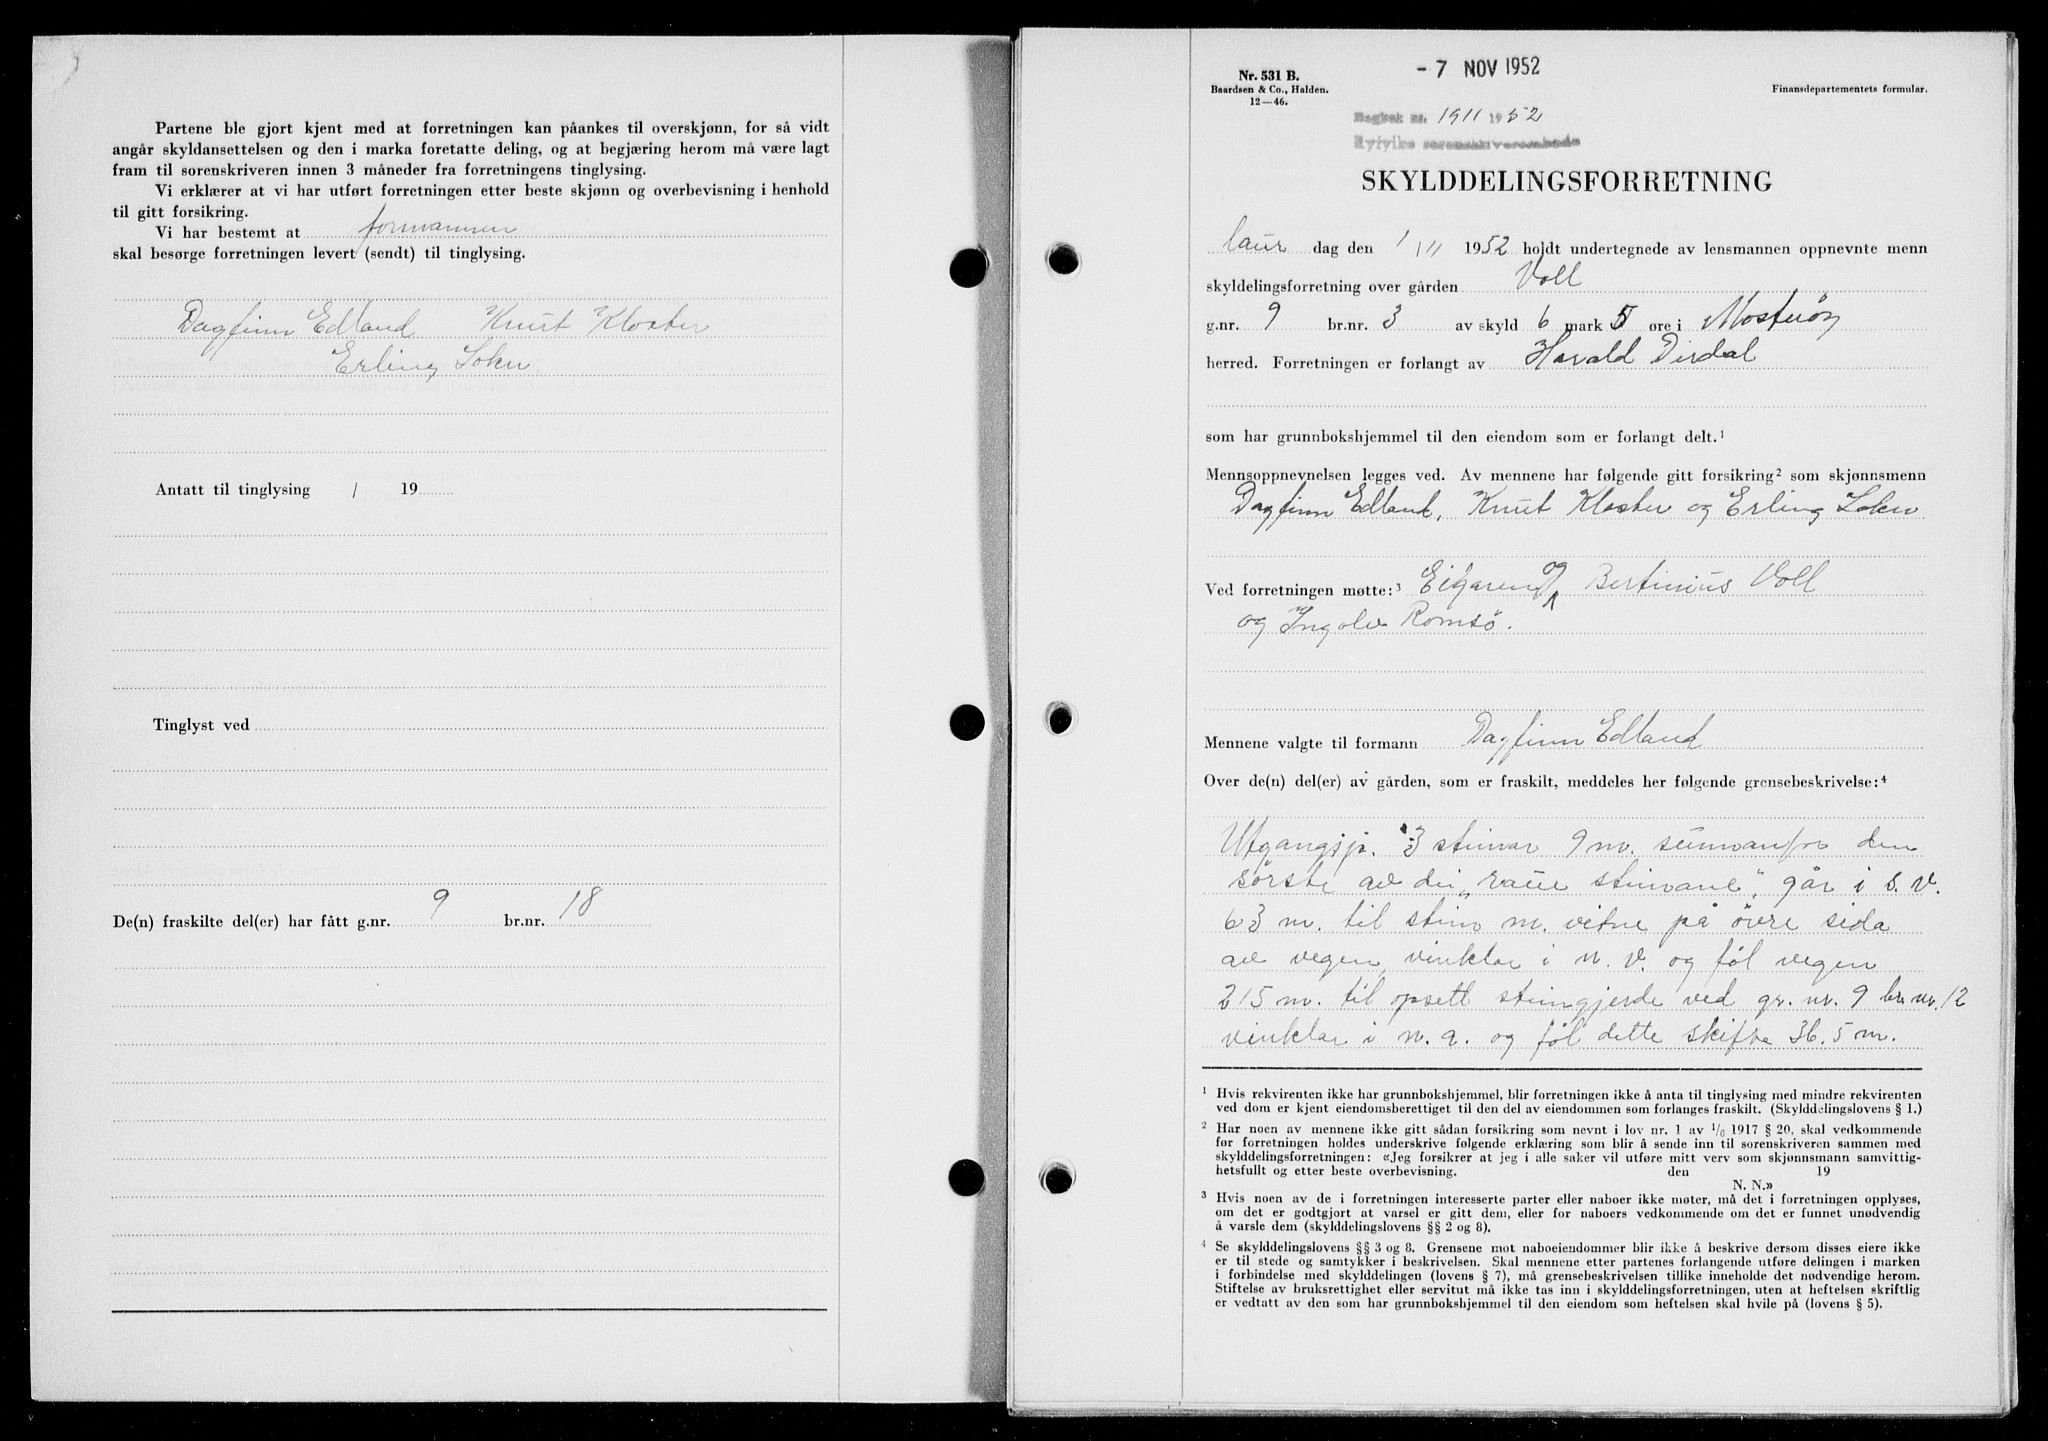 Partene ble gjort kjent med at forretningen kan påankes til overskjønn, for så vidt
angår skyldansettelsen og den i marka foretatte deling, og at begjæring herom må være lagt
fram til sorenskriveren innen 3 måneder fra forretningens tinglysing.
Vi erklærer at vi har utført forretningen etter beste skjønn og overbevisning i henhold
til gitt forsikring.
Vi har bestemt at formannen
skal besørge forretningen levert (sendt) til tinglysing.
Dagfinn Edland Knut Kloster
Erling Sokn
Antatt til tinglysing / 19
Tinglyst ved
De(n) fraskilte del(er) har fått g.nr. 9 br.nr. 18
Nr. 531 B.
Baardsen & Co., Halden.
12—46.
- 7 NOV 1952
Finansdepartementets formular.
Dagbok nr. 1911 1952
Ryfylke sorenskriverembede
SKYLDDELINGSFORRETNING
laur dag den 1/11 1952 holdt undertegnede av lensmannen oppnevnte menn
skyldelingsforretning over gården Voll
g.nr. 9 br.nr. 3 av skyld 6 mark 5 øre i Mosterøy
herred. Forretningen er forlangt av Harald Dirdal
som har grunnbokshjemmel til den eiendom som er forlangt delt.¹
Mennsoppnevnelsen legges ved. Av mennene har følgende gitt forsikring² som skjønnsmenn
Dagfinn Edland, Knut Kloster og Erling Sokn
Ved forretningen møtte:³ Eigaren og Bertinius Voll
og Ingolv Romsö.
Mennene valgte til formann Dagfinn Edland
Over de(n) del(er) av gården, som er fraskilt, meddeles her følgende grensebeskrivelse:⁴
Utgangsp. 3 steinar 9 m. sunnanfor den
sörste av dei „raue steinane", går i s.v.
63 m. til stein m. vitne på övre sida
av vegen, vinklar i n.v. og föl vegen
215 m. til opsett steingjerde ved gr. nr. 9 br. nr. 12
vinklar i n.a. og föl dette skifte 36.5 m.
¹ Hvis rekvirenten ikke har grunnbokshjemmel, blir forretningen ikke å anta til tinglysing med mindre rekvirenten
ved dom er kjent eiendomsberettiget til den del av eiendommen som forlanges fraskilt. (Skylddelingslovens § 1.)
² Har noen av mennene ikke gitt sådan forsikring som nevnt i lov nr. 1 av 1/6 1917 § 20, skal vedkommende
før forretningen holdes underskrive følgende erklæring som blir å sende inn til sorenskriveren sammen med
skylddelingsforretningen: «Jeg forsikrer at jeg i alle saker vil utføre mitt verv som skjønnsmann samvittig-
hetsfullt og etter beste overbevisning. den 19
N. N.»
³ Hvis noen av de i forretningen interesserte parter eller naboer ikke møter, må det i forretningen opplyses,
om det er godtgjort at varsel er gitt dem, eller for naboers vedkommende om det er funnet unødvendig
å varsle dem (skylddelingslovens §§ 2 og 8).
⁴ Se skylddelingslovens §§ 3 og 8. Grensene mot naboeiendommer blir ikke å beskrive dersom disses eiere ikke
er til stede og samtykker i beskrivelsen. Skal mennene etter partenes forlangende utføre delingen i marken
i forbindelse med skylddelingen (lovens § 7), må grensebeskrivelsen tillike inneholde det nødvendige herom.
Stiftelse av bruksrettighet eller servitut må ikke tas inn i skylddelingsforretningen, uten at heftelsen skriftlig
er vedtatt av den som har grunnbokshjemmel til den eiendom som heftelsen skal hvile på (lovens § 5).